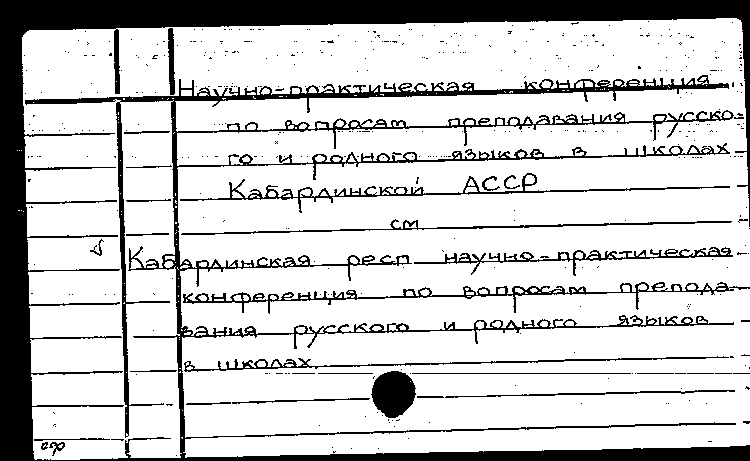 Научно-практическая конференция
по вопросам преподавания русско-
го и родного языков в школах
Кабардинской АССР
см
Кабардинская респ научно-практическая
конференция по вопросам препода-
вания русского и родного языков
в школах.